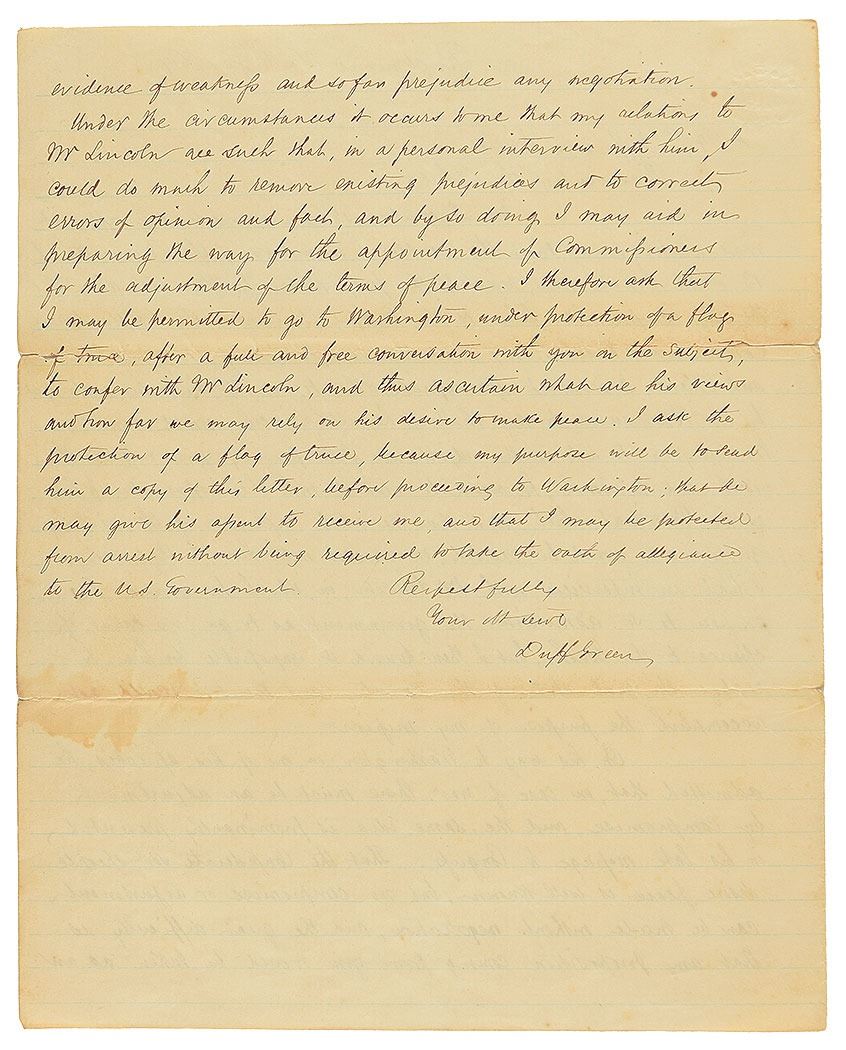 evidence of weakness and so far prejudice any negotiation.
Under the circumstances it occurs to me that my relations to
Mr Lincoln are such that, in a personal interview with him, I
could do much to remove existing prejudices and to correct
errors of opinion and fact, and by so doing I may aid in
preparing the way for the appointment of Commissioners
for the adjustment of the terms of peace. I therefore ask that
I may be permitted to go to Washington, under protection of a flag
of truce, after a full and free conversation with you on the subject,
to confer with Mr Lincoln, and thus ascertain what are his views
and how far we may rely on his desire to make peace. I ask the
protection of a flag of truce, because my purpose will be to send
him a copy of this letter, before proceeding to Washington; that he
may give his assent to receive me, and that I may be protected
from arrest without being required to take the oath of allegiance
to the U.S. Government. Respectfully
Your Ob Servt
Duff Green